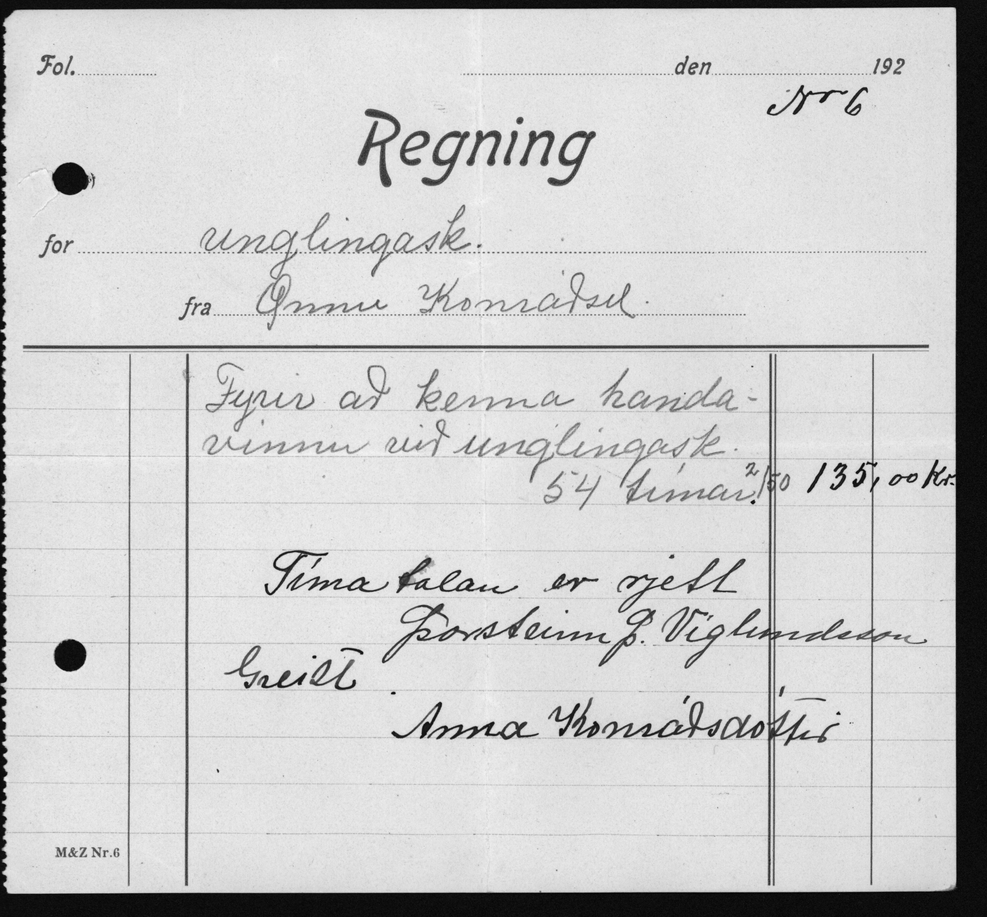 Fol. den 192
Nr 6
Regning
for unglingask.
fra Önnu Konráðsd.
Fyrir að kenna handa-
vinnu við unglingask.
54 tímar. 2/50 135,00 Kr.
Tíma talan er rjett
Þorsteinn Þ. Víglundsson
Greitt
Anna Konráðsdóttir
M&Z Nr.6